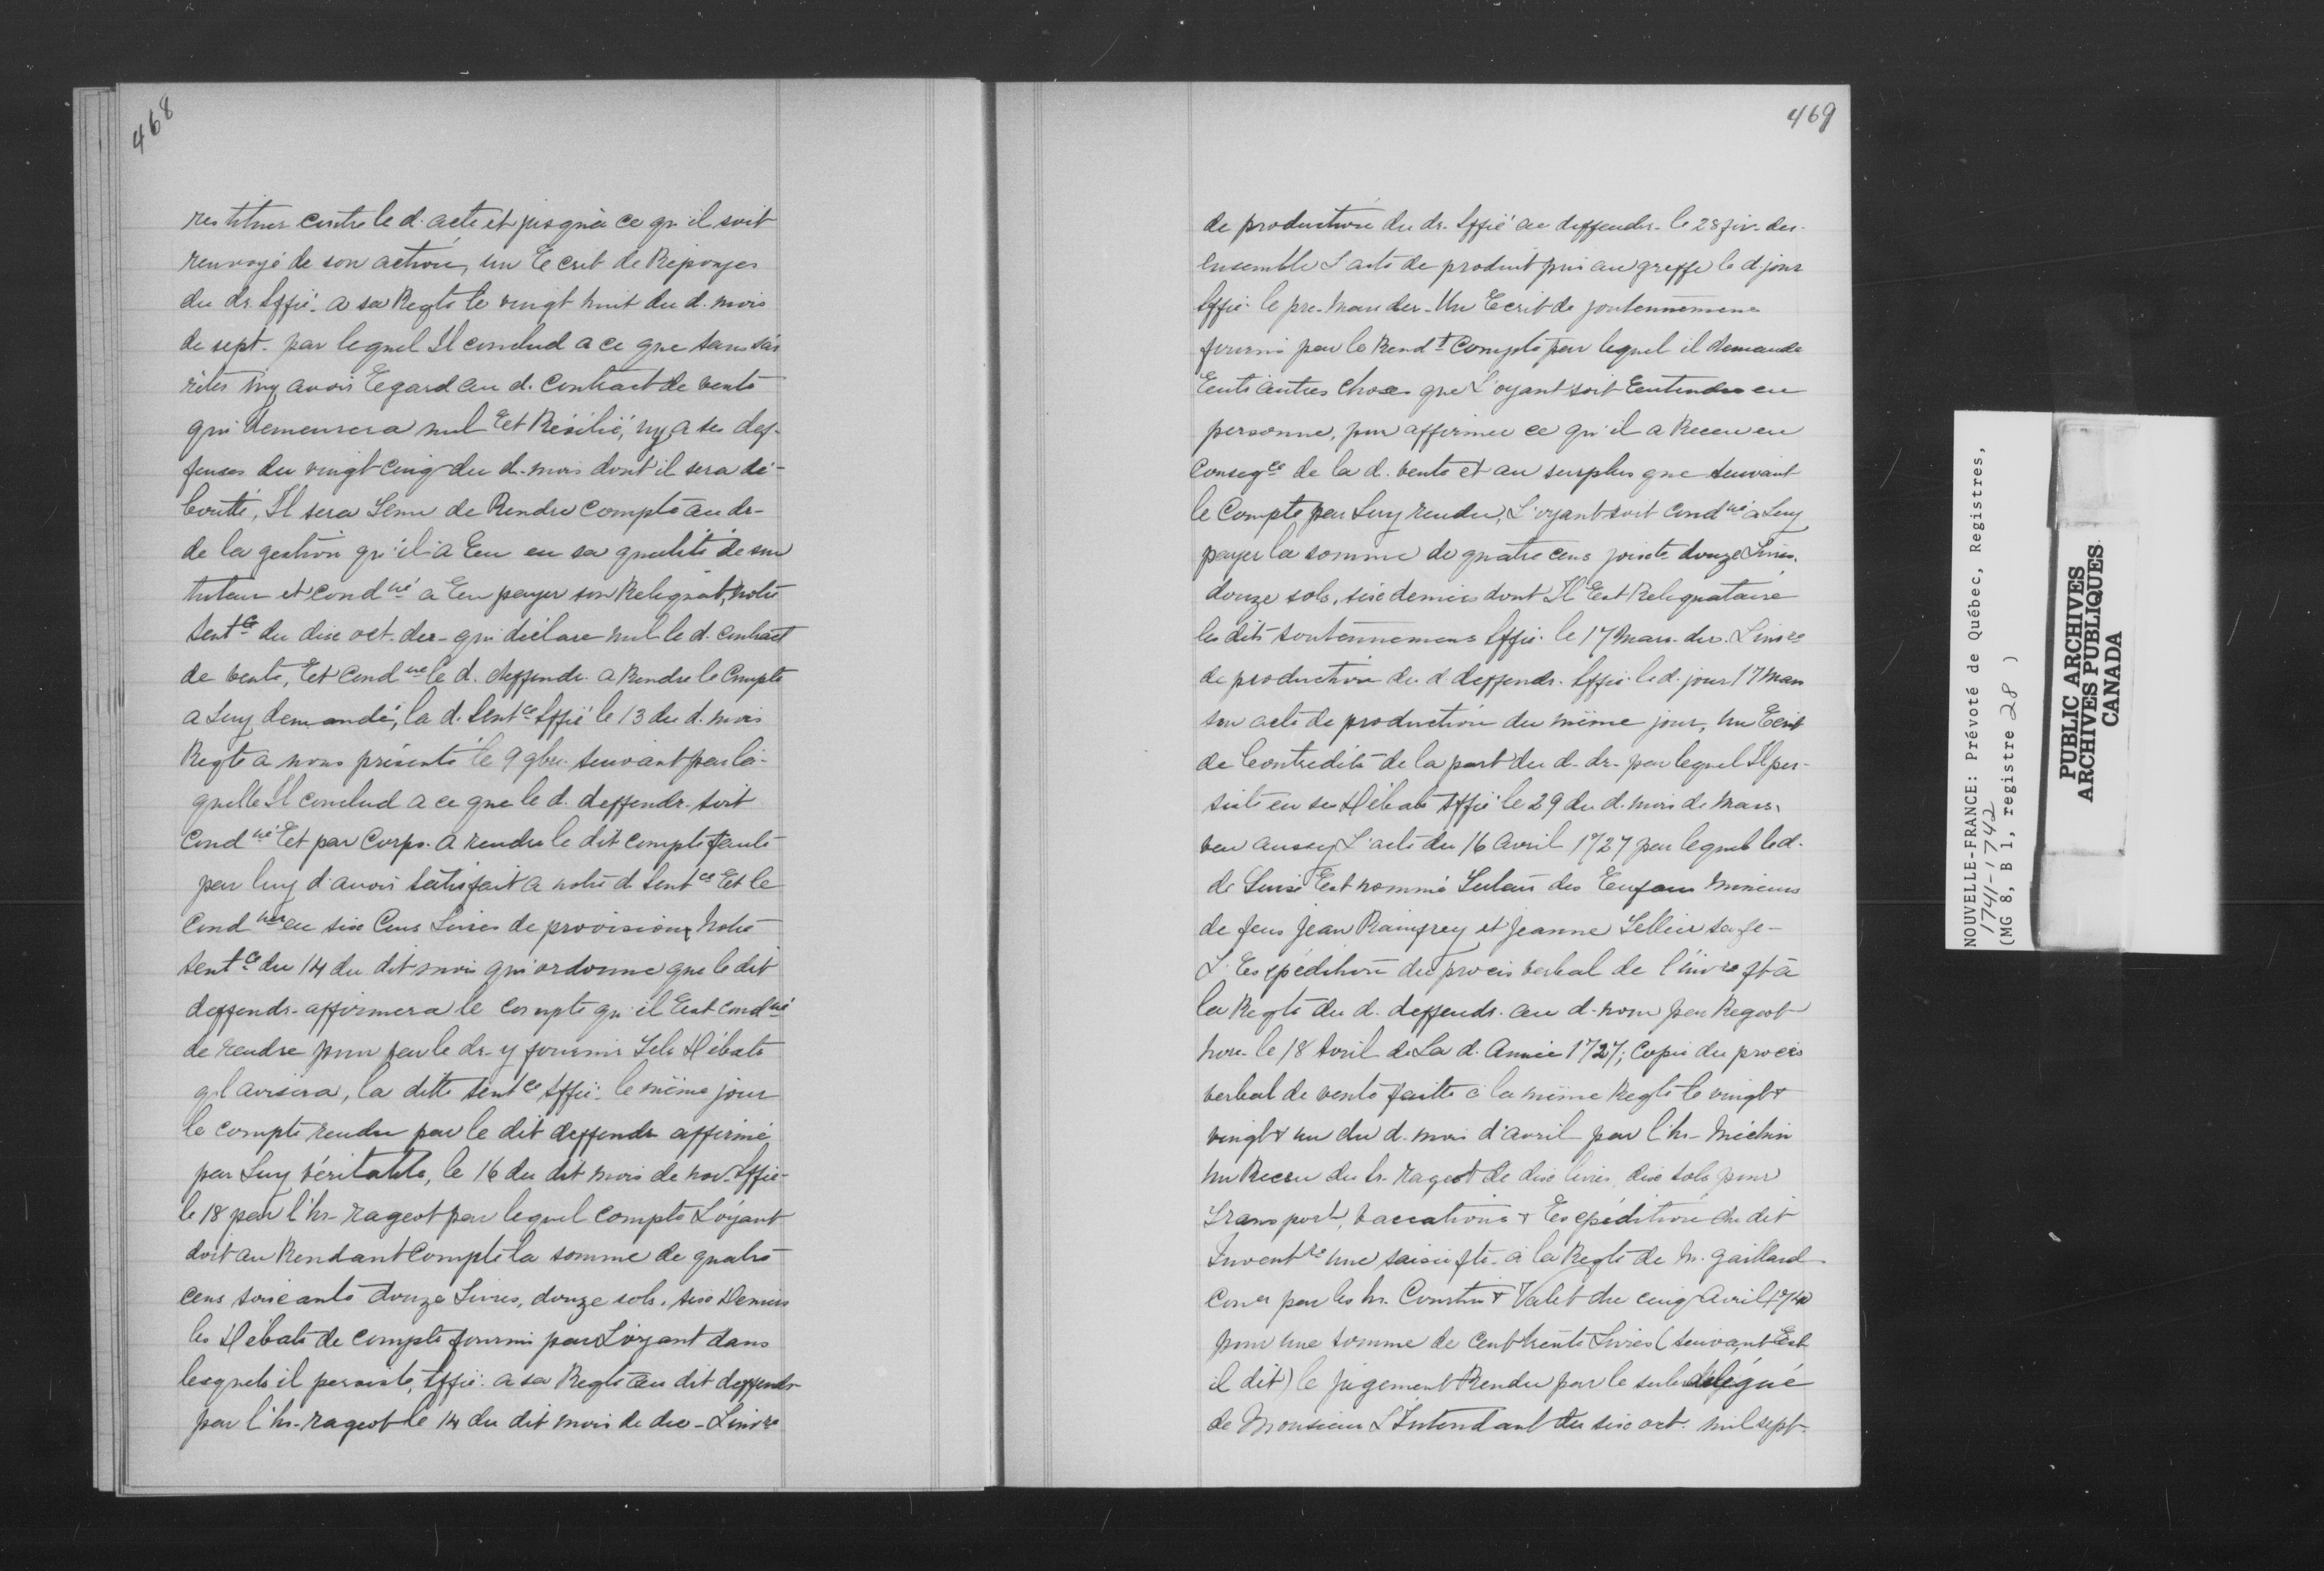 468
restituer contre le d. acte et jusqu'à ce qu'il soit
renvoyé de son action, un Ecrit de Réponses
du dr. Siffié. a sa Reqte le vingt huit du d. mois
de sept. par lequel Il conclud a ce que sans s'ar
rêter ny avoir Egard au d. Contract de vente
qui demeurera nul Et Résilié, ny a ses def-
fenses du vingt cinq du d. mois dont il sera dé-
boutté, Il sera Tenu de Rendre compte au dr-
de la gestion qu'il a Eeu en sa qualité de son
tuteur et cond né a En payer son Reliquat, notre
sent ce du dix oct. der- qui déclare nul le d. contract
de vente, Et cond ne le d. deffendr. a Rendre le Compte
a Luy demandé, la d. Sent ce Siffié le 13 du d. mois
Reqte a nous présenté le 9 9bre suivant par la-
quelle Il conclud a ce que le d. deffendr. soit
Cond né Et par Corps. a rendre le dit compte faute
par luy d'avoir satisfait a notre d. Sent ce Et le
Cond ner en six Cens Livres de provision, Notre
sent ce du 14 du dit mois qui ordonne que le dit
deffendr- affirmera le compte qu'il Est cond né
de rendre pour par le dr- y fournir Tels Débats
ql avisera, la ditte sent ce Siffié. le même jour
le compte rendu par le dit deffendr affirmé
par Luy véritable, le 16 du dit mois de nov. Siffié-
le 18 par l'hr- rageot par lequel compte L'oyant
doit au Rendant Compte la somme de quatre
cens soixante douze Livres, douze sols, six Deniers
les Débats de compte fourni par L'oyant dans
lesquels il persiste, Siffié. a sa Reqte au dit deffendr
par l'hr- rageot le 14 du dit mois de dec- L'inv re
469
de production du dr. Siffié au deffendr- le 28 fév. der-
Ensemble L'acte de produit mis au greffe le d. jour
Siffié. le pre. Mars der- Un Ecrit de soutennemens
fourni par le Rend t Compte par lequel il demande
Entr'autres choses que L'oyant soit Entendu en
personne, pour affirmer ce qu'il a Receu en
Conseq ce de la d. vente et au surplus que suivant
le Compte par Luy rendu, L'oyant soit cond né a Luy
payer la somme de quatre cens soixte douze Livres,
douze sols, six deniers dont Il Est Reliquataire
les dits soutennemens Siffié. le 17 Mars der. L'inv re
de production du d. deffendr. Siffié. le d. jour 17 Mars
son acte de production du même jour, Un Ecrit
de Contredits de la part du d. dr- par lequel Il per-
siste en ses Débats Siffié le 29 du d. mois de Mars,
veu aussy L'acte du 16 Avril 1727 par lequel le d.
de Lurse Est nommé Tuteur des Enfans Mineurs
de feus Jean Rainfrey et Jeanne Tellier sa fe-
L'Expédition du procès verbal de l'inv re ft à
la Reqte du d. deffendr. au d. nom par Rageot
nore- le 18 Avril de La d. Année 1727; Copie du procès
verbal de vente faitte à la même Reqte le vingt &
vingt & un du d. mois d'avril par l'hr- Méchin
Un Receu du Sr. rageot de dix livres dix sols pour
Transport, vaccations & Expédition du dit
Invent re une saisie fte- à la Reqte de M. Gaillard
Conr par les hr. Courtin & Valet du cinq Avril 1740
pour une somme de Cent trente Livres (suivant Est
il dit) le jugement Rendu par le subdélégué
de Monsieur L'Intendant du six oct. mil sept-
NOUVELLE-FRANCE: Prévoté de Québec, Registres,
1741-1742
(MG 8, B 1, registre 28 )
PUBLIC ARCHIVES
ARCHIVES PUBLIQUES
CANADA